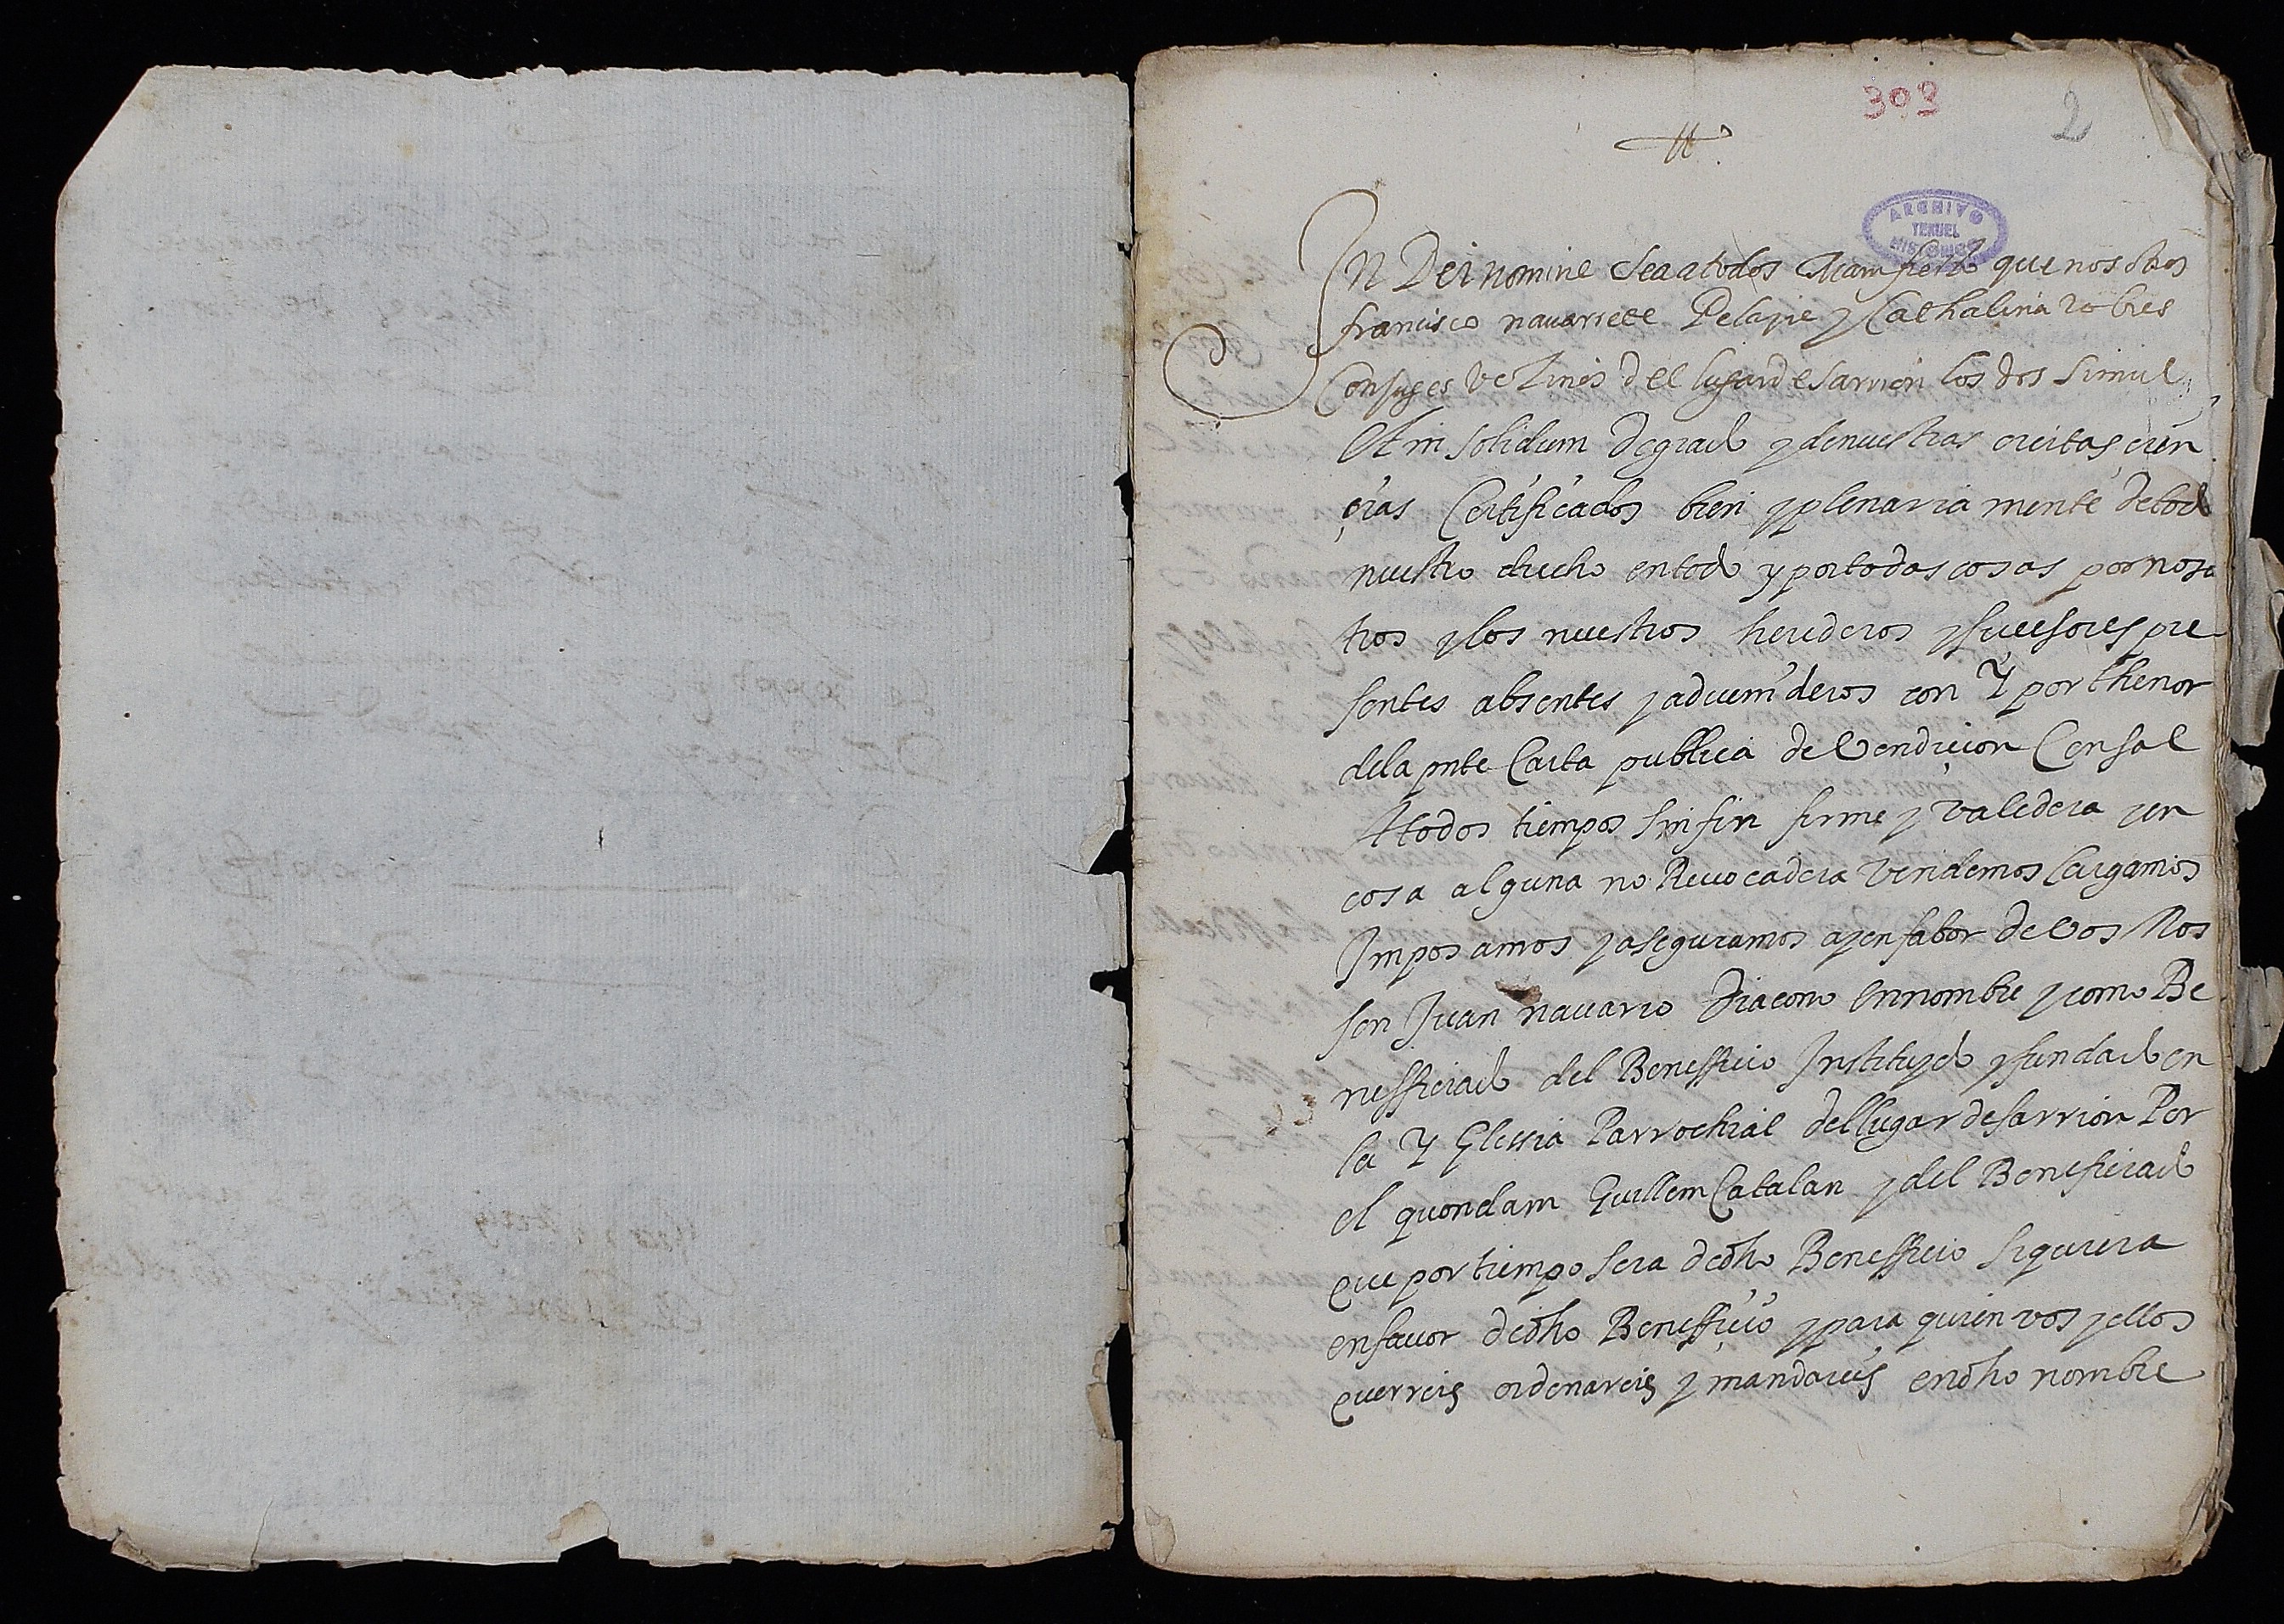 302
2
ARCHIVO
TERUEL
HISTORICO
In Dei nomine sea a todos Manifiesto que nosotros
francisco nauarrete Pelayre y Cathalina robres
Conjuges vezinos del lugar de sarrion los dos simul
Et in solidum de grado y de nuestras ciertas cien
cias Certificados bien y plenaria mente de todo
nuestro drecho en todo y por todas cosas por noso
tros y los nuestros herederos y sucesores pre
sentes absentes y aduenideros con Y por thenor
de la pnte Carta publica de Vendicion Censal
A todos tiempos sin fin firme y valedera y en
cosa alguna no Reuocadera Vendemos Cargamos
Imposamos y aseguramos a y en fabor de Vos Mos
sen Juan nauarro Diacono en nombre y como Be
nefficiado del Benefficio Instituydo y fundado en
la Y Glessia Parrochial del lugar de sarrion Por
el quondam Guillem Catalan y del Beneficiado
que por tiempo sera de dho Benefficio siquiera
en fauor de dho Benefficio y para quien vos y ellos
querreis ordenareis y mandareis en dho nombre